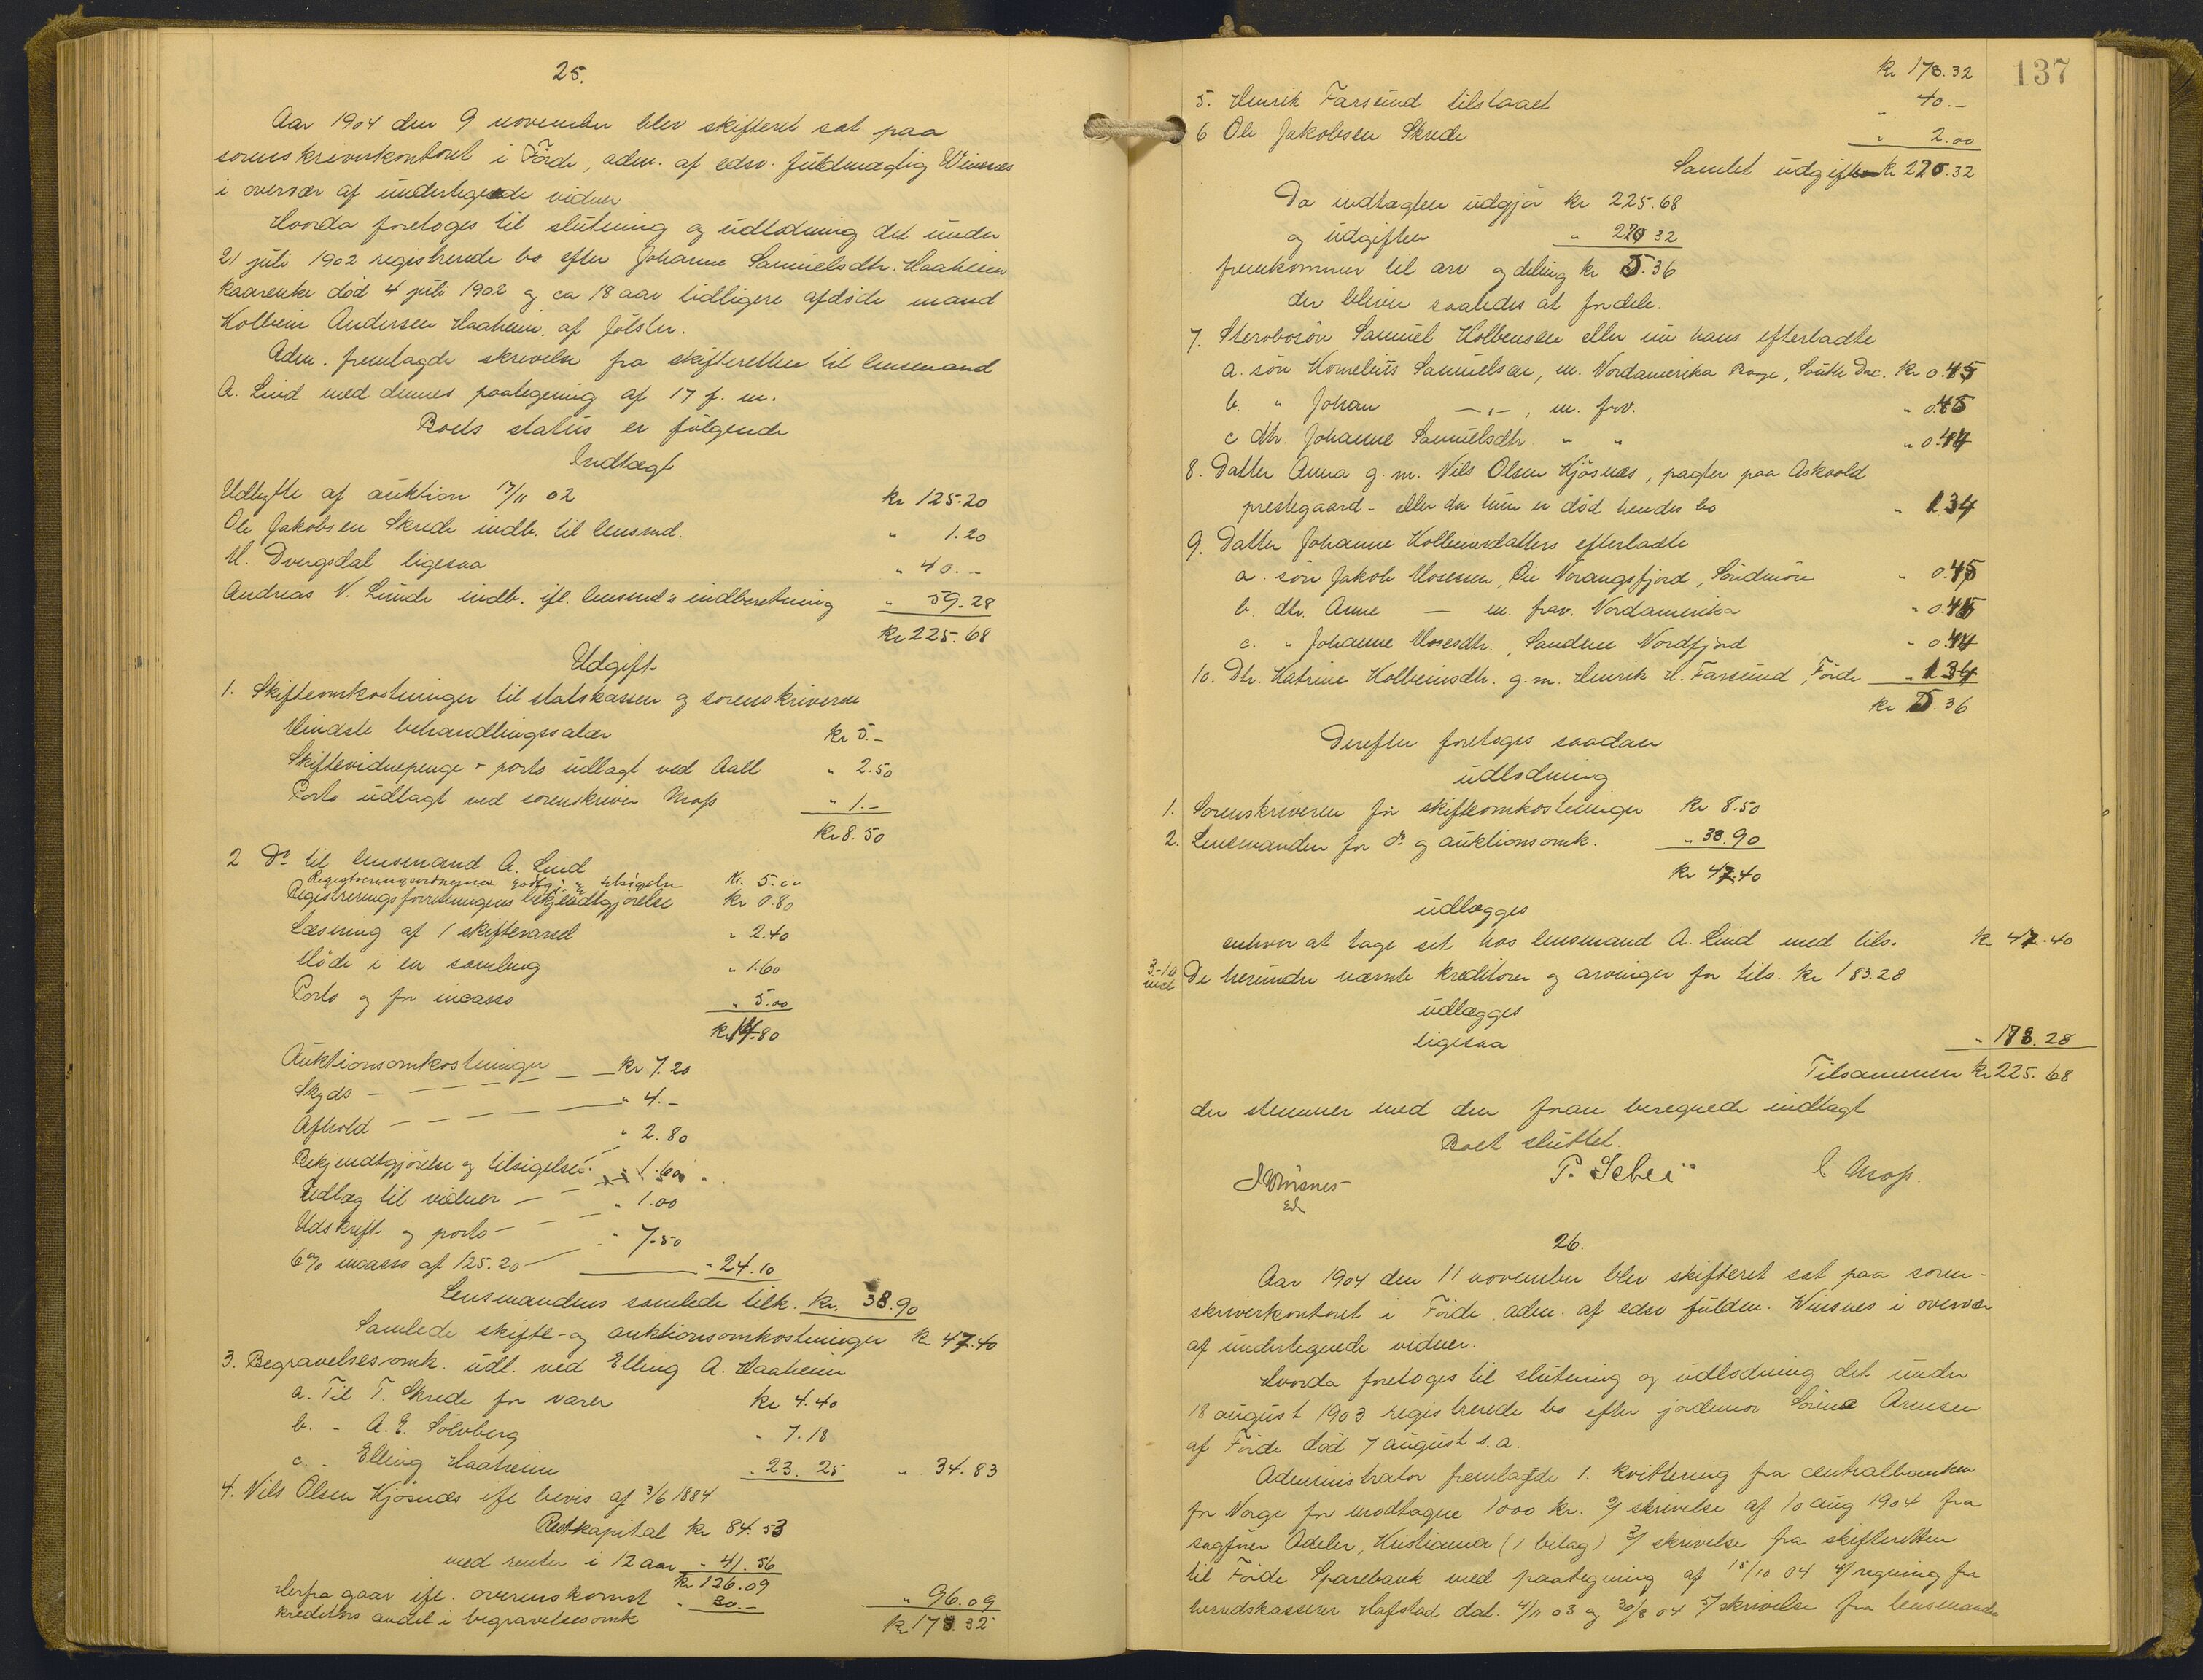 25.
Aar 1904 den 9 november blev skifteret sat paa
sorenskriverkontoret i Förde, adm. af edsv. fuldmægtig Winsnes
i overvær af undertegnede vidner
Hvorda foretoges til slutning og udlodning det under
21 juli 1902 registrerede bo efter Johanne Samuelsdtr. Haaheim
kaarenke död 4 juli 1902 og ca 18 aar tidligere afdöde mand
Kolbein Andersen Haaheim af Jölster.
Adm. fremlagde skrivelse fra skifteretten til lensmand
A. Lind med dennes paategning af 17 f. m.
Boets status er fölgende
Indtægt
Udbytte af auktion 17/11 02 kr 125.20
Ole Jakobsen Skrede indb. til lensmd. " 1.20
M. Dvergsdal ligesaa " 40.-
Andreas N. Lunde indb. ifl. lensmd's indberetning " 59.28
kr 225.68
Udgift
1. Skifteomkostninger til statskassen og sorenskriveren
Mindste behandlingssalær kr 5.-
Skiftevidnepenge + porto udlagt ved Aall " 2.50
Porto udlagt ved sorenskriver Moss " 1.-
kr 8.50
2 Do til lensmand A. Lind
Registreringsvidnernes godtgj. og tilsigelse Kr. 5.00
Registreringsforretningens bekjendtgjörelse kr 0.80
Læsning af 1 skiftevarsel " 2.40
Möde i en samling " 1.60
Porto og for incasso " 5.00
kr 14.80
Auktionsomkostninger kr 7.20
Skyds " 4.-
Afhold " 2.80
Bekjendtgjörelse og tilsigelse. " 1.60
Udlæg til vidner " 1.00
Udskrift og porto " 7.50
6% incasso af 125.20 " 24.10
Lensmandens samlede tilk. kr. 38.90
Samlede skifte- og auktionsomkostninger kr 47.40
3. Begravelsesomk. udl. ved Elling A. Haaheim
a. Til T. Skrede for varer kr 4.40
b. - A. E. Sölvberg " 7.18
c. - Elling Haaheim " 23.25 " 34.83
4. Nils Olsen Hjösnæs ifl bevis af 3/6 1884
Restkapital kr 84.53
med renter i 12 aar " 41.56
kr 126.09
Herfra gaar ifl. overenskomst " 30.- " 96.09
kreditors andel i begravelsesomk kr 178.32
137
kr 178.32
5. Henrik Farsund tilstaaet " 40.-
6 Ole Jakobsen Skrede " 2.00
Samlet udgift kr 220.32
Da indtægten udgjör kr 225.68
og udgiften " 220 32
fremkommer til arv og deling kr 5.36
der bliver saaledes at fordele.
7. Sterbosön Samuel Kolbensen eller nu hans efterladte
a. sön Kornelius Samuelsen, m. Nordamerika, South Dac. kr 0.45
b. " Johan -"-, m. frv. " 0.45
c dtr. Johanne Samuelsdtr " " " 0.44
8. Datter Anna g. m. Nils Olsen Hjösnæs, pagter paa Askvold
prestegaard - eller da hun er död hendes bo " 1 34
9. Datter Johanne Kolbeinsdatters efterladte
a. sön Jakob Mosesen, Öie Norangsfjord, Söndmöre " 0.45
b. dtr. Anne — m. frav. Nordamerika " 0.45
c. " Johanne Mosesdtr., Sandene Nordfjord " 0.44
10. Dtr. Katrine Kolbeinsdtr. g. m. Henrik H. Farsund, Förde " 1 34
kr 5.36
Derefter foretoges saadan
udlodning
1. Sorenskriveren for skifteomkostninger kr 8.50
2. Lensmanden for do og auktionsomk. " 38.90
kr 47.40
udlægges
enhver at tage sit hos lensmand A. Lind med tils. kr 47.40
3-10 incl De herunder nævnte kreditorer og arvinger for tils. kr 183.28
udlægges
ligesaa " 178.28
Tilsammen kr 225.68
der stemmer med den foran beregnede indtægt
Boet sluttet.
Winsnes P. Schei C Moss.
Ed.
26.
Aar 1904 den 11 november blev skifteret sat paa soren-
skriverkontoret i Förde adm. af edsv fuldm. Winsnes i overvær
af undertegnede vidner.
Hvorda foretoges til slutning og udlodning det under
18 august 1903 registrerede bo efter jordemor Sörine Arnesen
af Förde död 7 august s. a.
Administrator fremlagde 1. kvittering fra centralbanken
for Norge for modtagne 1000 kr. 2/ skrivelse af 10 aug 1904 fra
sagförer Adeler, Kristiania (1 bilag) 3/ skrivelse fra skifteretten
til Förde Sparebank med paategning af 15/10 04 4/ regning fra
herredskasserer Hafstad dat. 4/11 03 og 30/8 04 5/ skrivelse fra lensmanden